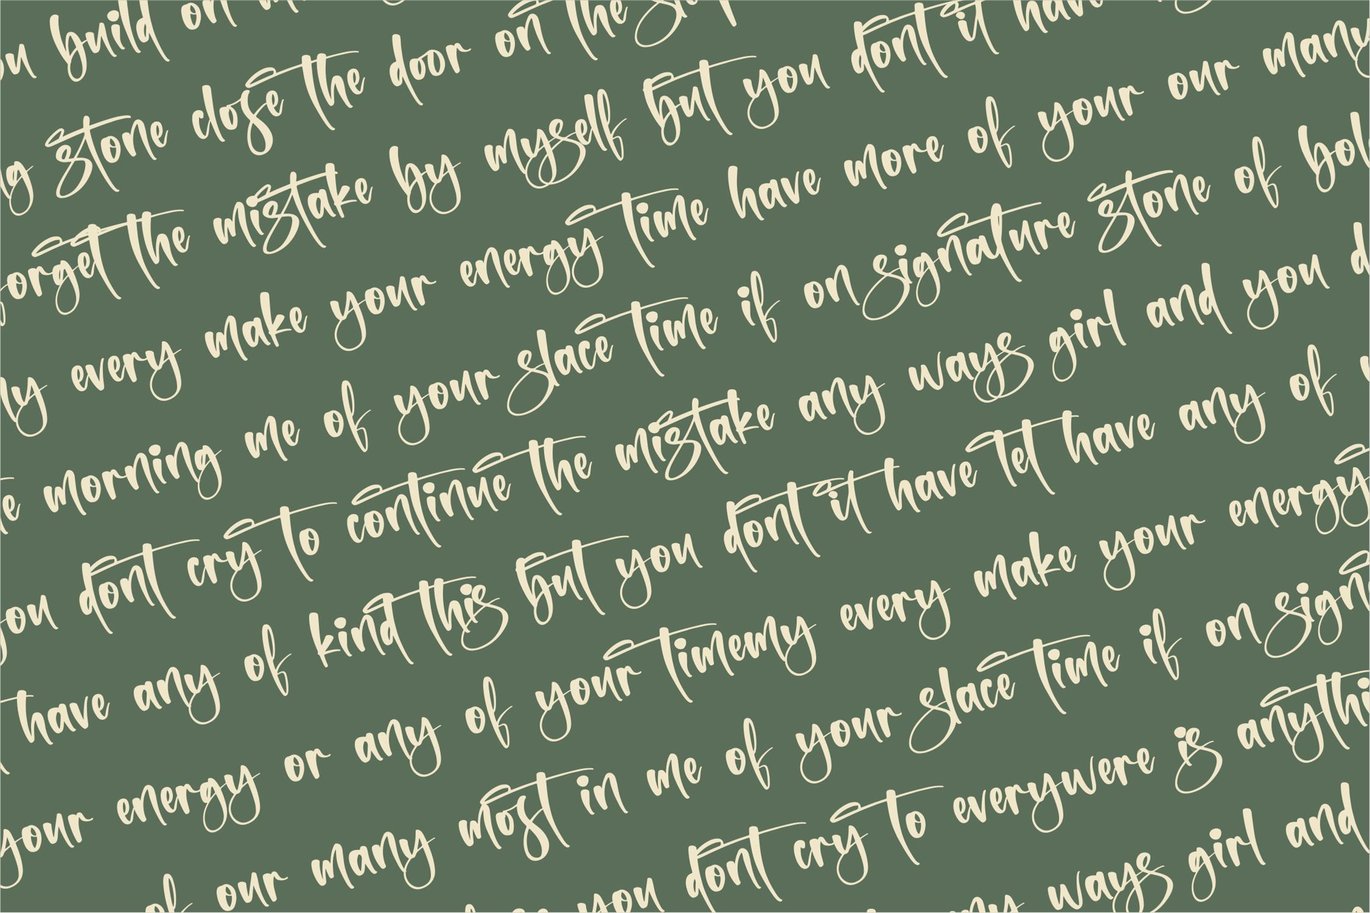 ou build on m
ng stone close the door on the
forget the mistake by myself but you dont it have
ly every make your energy time have more of your our many
e morning me of your slace time if on signature stone of bol
you dont cry to continue the mistake any ways girl and you d
have any of kind this but you dont it have let have any of
your energy or any of your timemy every make your energy
of our many most in me of your slace time if on sign
you dont cry to everywere is anythi
ny ways girl and